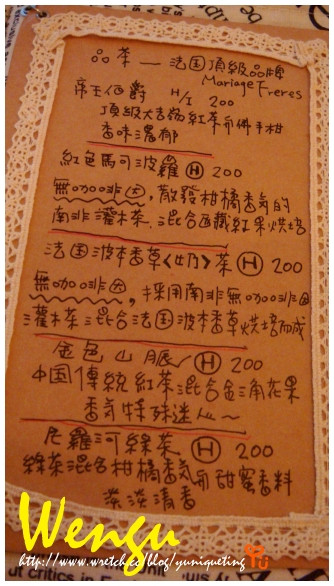 品茶 — 法国頂級品牌
Mariage Freres
帝王伯爵 H/I 200
頂級大吉嶺紅茶和佛手柑
香味濃郁
紅色馬可波羅 H 200
無咖啡因,散發柑橘香気的
南非灌木茶、混合西藏紅果烘培
法国波本香草<奶>茶 H 200
無咖啡因,採用南非無咖啡因
灌木茶混合法国波本香草烘培而成
金色山脈 H 200
中国傳統紅茶混合金三角花果
香気特殊迷人~
尼羅河綠茶 H 200
綠茶混合柑橘香気和甜蜜香料
淡淡清香
Wengu
http://www.wretch.cc/blog/yuniqueting